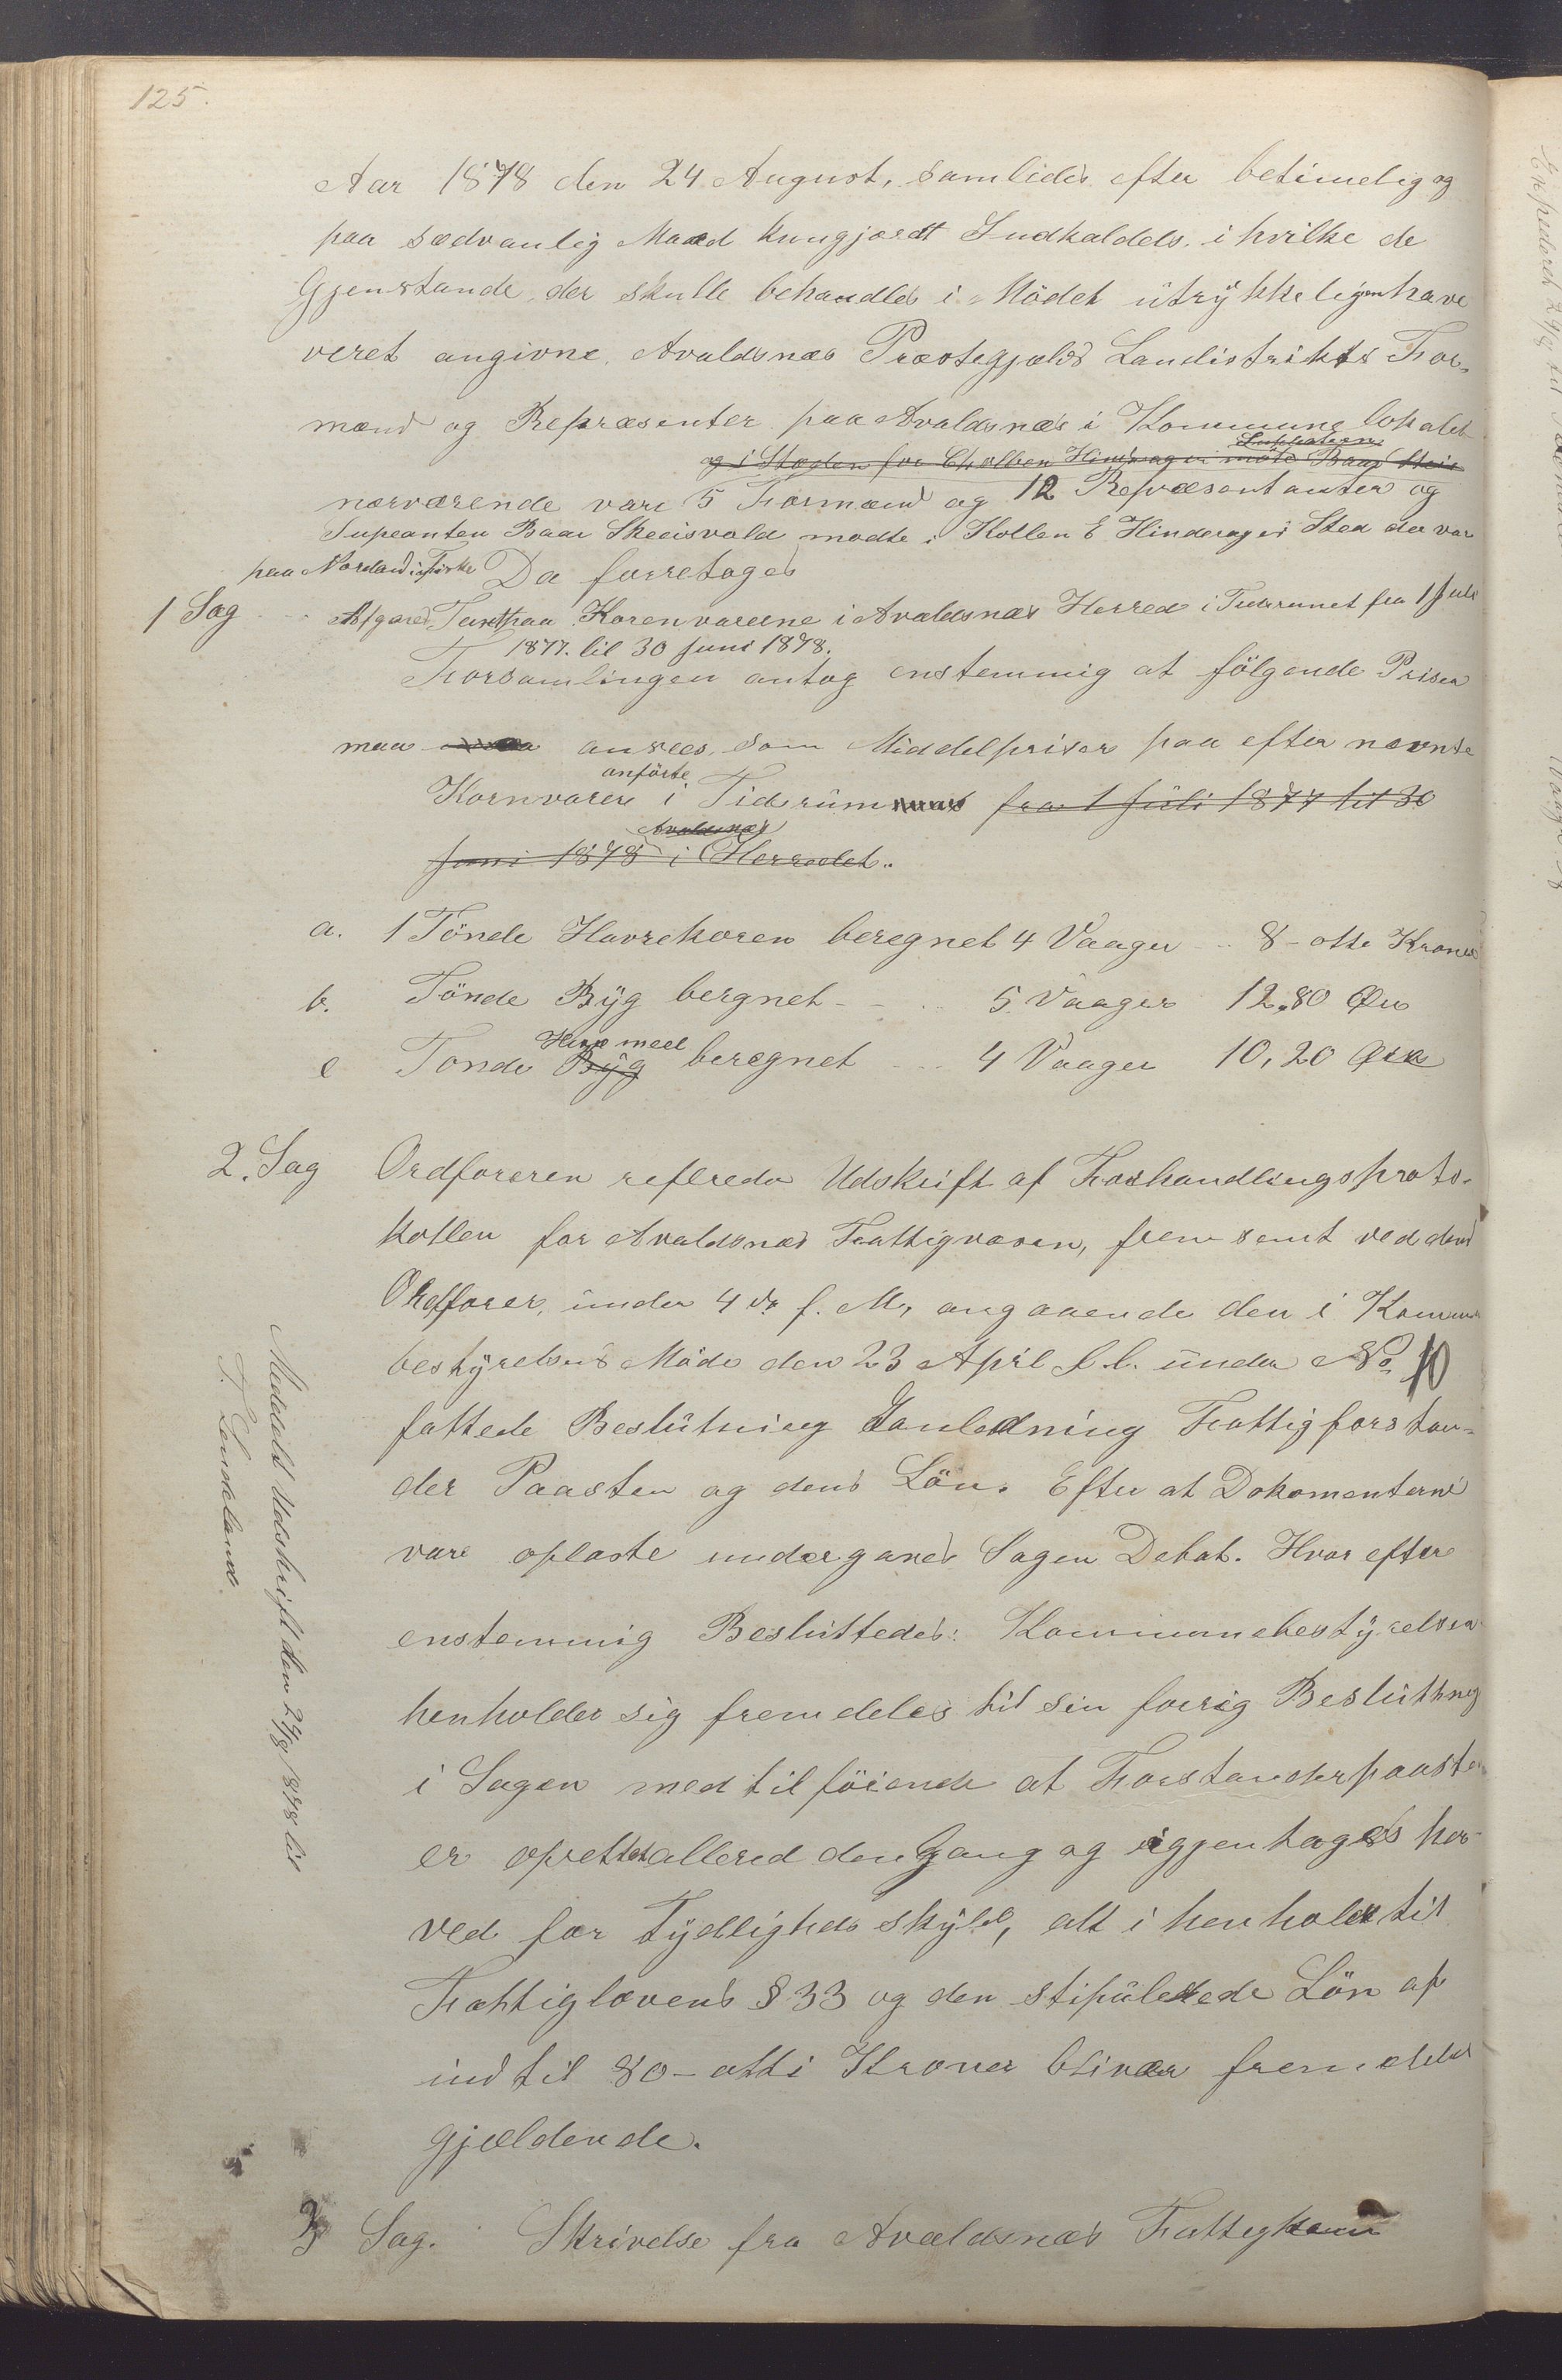 125.
Aar 1878 den 24 August, samlides efter betimelig og
paa sædvanlig Maad kungjordt Indkaldels. i hvilke de
Gjenstande, der skulle behandles i Mödet üdtrÿkkeligen have
veret angivne, Avaldsnæs Præstegjælds Landistrikts For-
mænd og Repræsenter paa Avaldsnæs i Kommune lokalet
og i Steden for
nærværende vare 5 Formænd og 12 Repræsentanter og
Supeanten Baar Skeisvold mødte i Kollen E Hinderager Sted der var
paa Nordand
Da forretoges
1 Sag Afgaves Taxt paa Korenvarene i Avaldsnæs Herred i Tiderumet fra 1 Juli
1877. til 30 Juni 1878.
Forsamlingen antog enstemmig at fölgende Priser
maa ansees som Middelpriser paa efter nævnte
anförte
Kornvarer i Tidsrüm fra 1 Jüli 1877 til 30
Avaldsnæs
Juni 1878 i Herredet.
a. 1 Tönde Havrekoren beregnet 4 Vaager 8 - otte Kroner
b. Tönde Bÿg bergnet 5 Vaager 12.80 Øre
c Tonde Bÿg beregnet 4 Vaager 10,20 Øre
2. Sag Ordforeren refereda Udskrift af Forhandlingsproto-
kollen for Avaldsnæs Fattigvæsen, frem semt ved dens
Ordforer, ünder 4de f. M, angaaende den i Kommun
bestÿrelsens Möde den 23 April d. l. ünder No 10
fattede Beslütning Ianledning Fattigforstan-
der Paasten og dens Lön. Efter at Dokomenterne
vare oplæste undergaves Sagen Debat. Hvor efter
enstemmig Besluttedes: Kommunebestÿrelsen
henholder sig fremdeles til sin forrig Beslütning
i Sagen med tilföiende at Forstanderpaasten
er oprettet allered den Gang og iggjentages her-
ved for Tÿdligheds skÿld, alt i henhold til
Fattiglovens § 33 og den stipülerede Lön af
indtil 80 - otti Kroner bliver fremdeles
gjældende.
3 Sag. Skrivelse fra Avaldsnæs Fattigkom
Meddelt Udskrift den 29/8 1878 til
F. Lindeland.